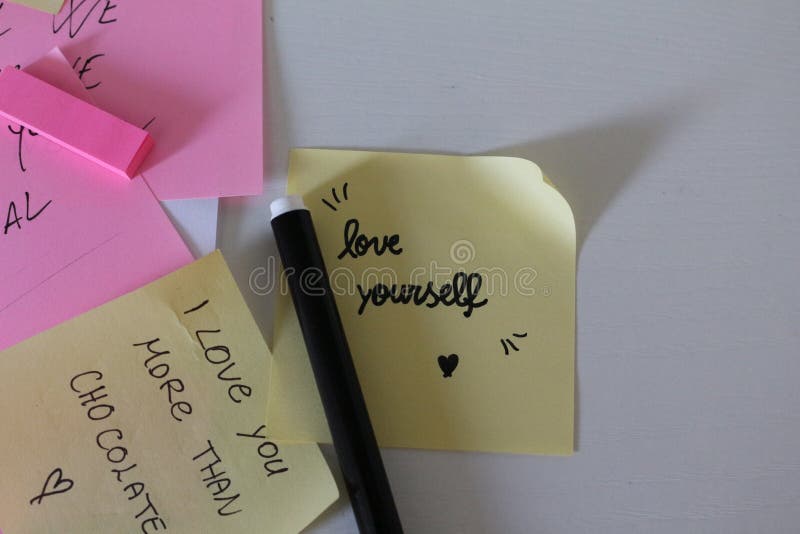 WE
AL
love
yourself
I LOVE YOU
MORE THAN
CHOCOLATE
dreamstime